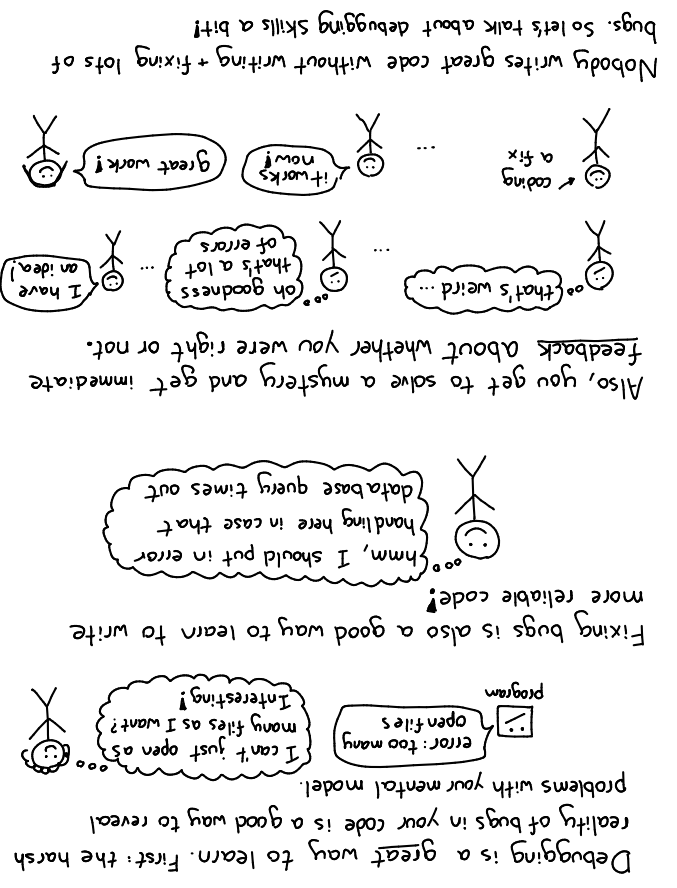 Debugging is a great way to learn. First: the harsh
reality of bugs in your code is a good way to reveal
problems with your mental model.
program
error: too many
open files
I can't just open as
many files as I want?
Interesting!
Fixing bugs is also a good way to learn to write
more reliable code!
hmm, I should put in error
handling here in case that
database query times out
Also, you get to solve a mystery and get immediate
feedback about whether you were right or not.
that's weird ...
...
oh goodness
that's a lot
of errors
...
I have
an idea!
coding
a fix
...
it works
now!
great work!
Nobody writes great code without writing + fixing lots of
bugs. So let's talk about debugging skills a bit!